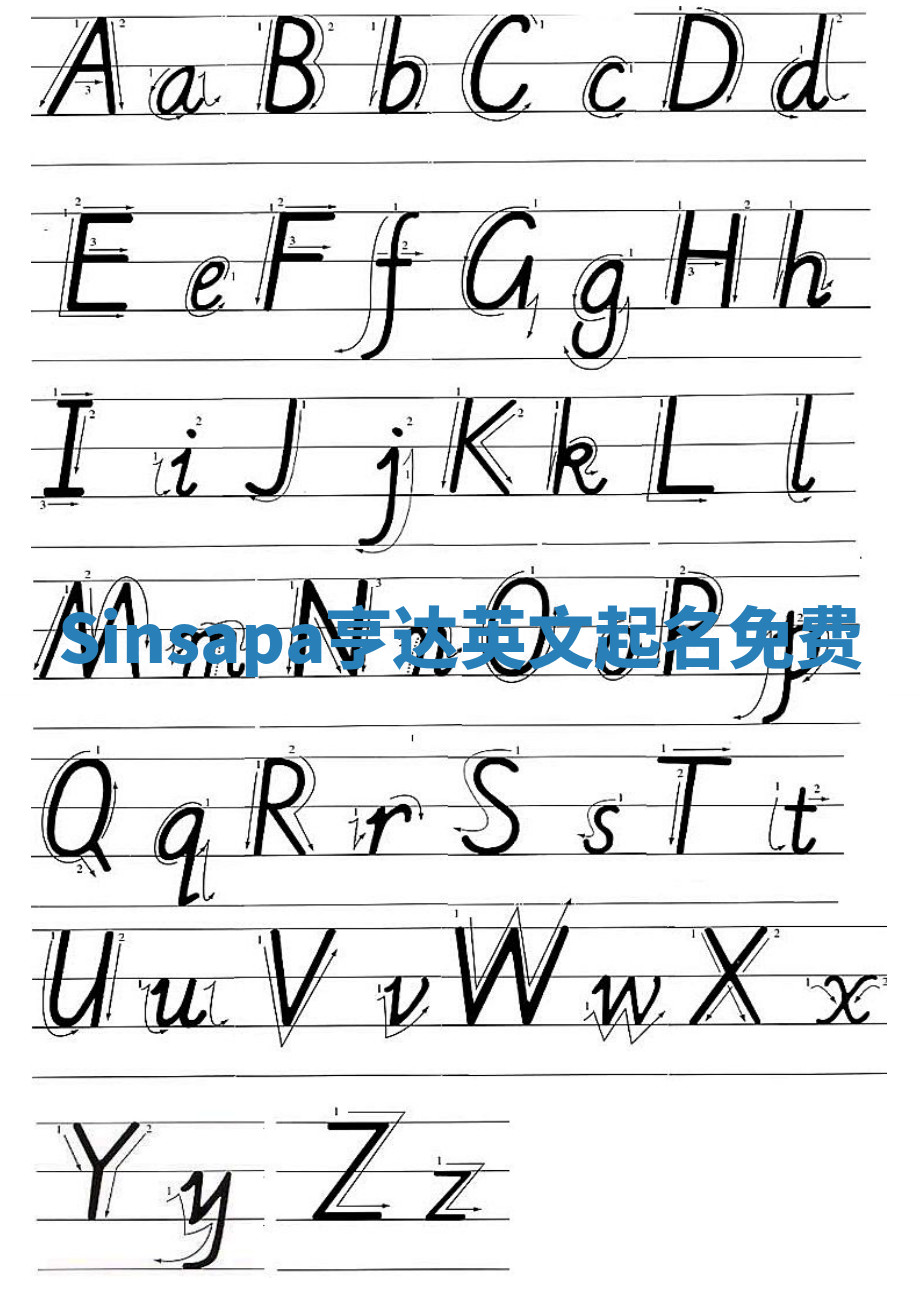 A a B b C c D d
E e F f G g H h
I i J j K k L l
M m N n O o P p
Sinsapa亨达英文起名免费
Q q R r S s T t
U u V v W w X x
Y y Z z